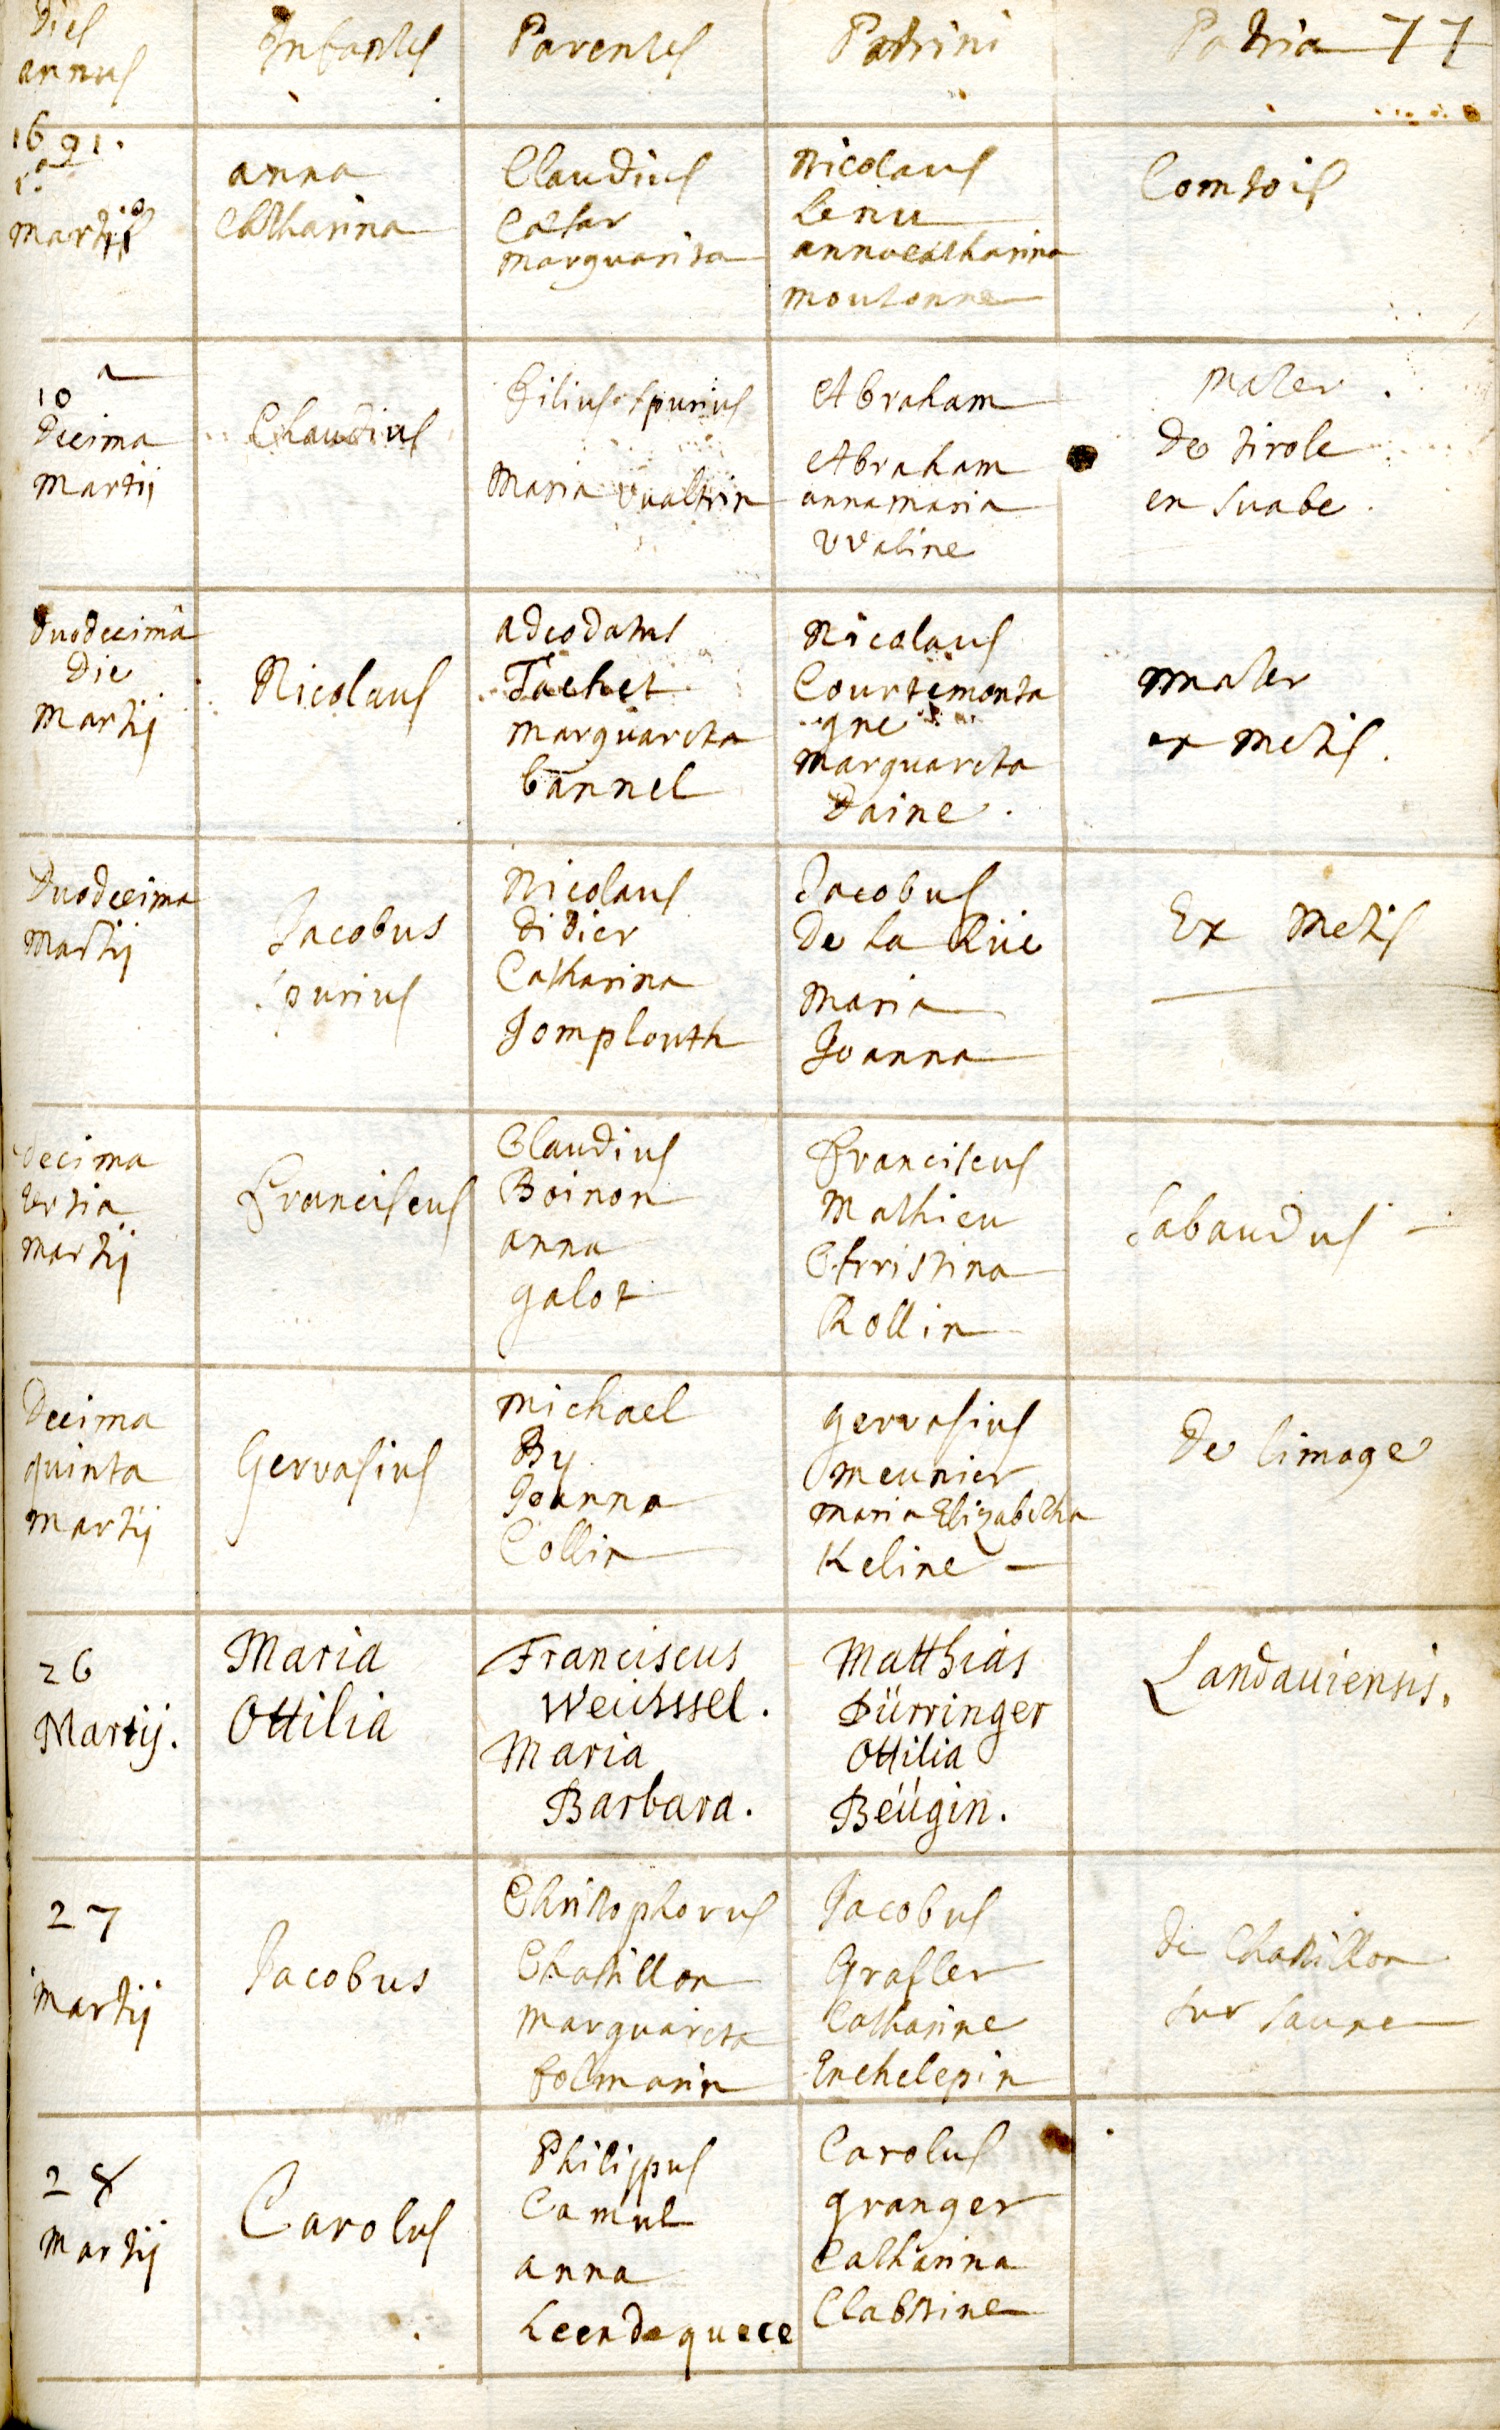 Dies
annus
Infantes
Parentes
Patrini
Patria 77
1691.
1a
martii
anna
Catharina
Claudius
Cæsar
marguarita
Nicolaus
Lenu
anna Catharina
moutonne
Comtois
10 a
Decima
Martii
Claudius
filius spurius
Maria Vualtrin
Abraham
Abraham
anna maria
VValine
mater
de tirole
en suabe.
duodecimâ
Die
Martij
Nicolaus
adeodatus
Tachet
marguareta
bannel
Nicolaus
Courtemonta
gne
marguareta
Daine.
mater
ex metis.
Duodecima
Martij
Jacobus
spurius
Nicolaus
didier
Catharina
Jomplouth
Jacobus
De la Rüe
maria
Joanna
Ex Metis
decima
tertia
martij
Franciscus
Claudius
Boinon
anna
galot
franciscus
Mathieu
Christina
Rollin
Sabaudus
Decima
quinta
martij
Gervasius
Michael
By
Joanna
Collin
gervasius
meunier
maria Elizabetha
Keline
De limoge
26
Martij.
Maria
Ottilia
Franciscus
Weüsssel.
Maria
Barbara.
Matthias
Dürringer
Ottilia
Beügin.
Landauiensis.
27
martij
Jacobus
Christophorus
Chatillon
marguareta
folmarin
Jacobus
Grasler
Catharine
Enchelepin
de Chatillon
sur saune
28
martij
Carolus
Philippus
Camul
anna
Leendaquece
Carolus
granger
Catharina
Clabtrine